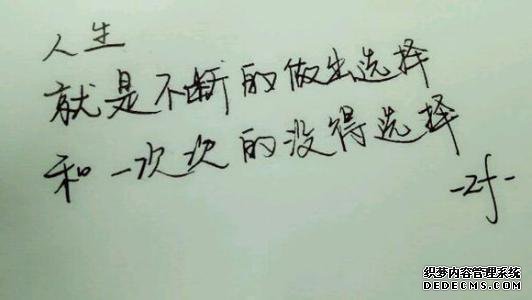 人生
就是不断的做出选择
和一次次的没得选择
-zf-
织梦内容管理系统
DEDECMS.COM